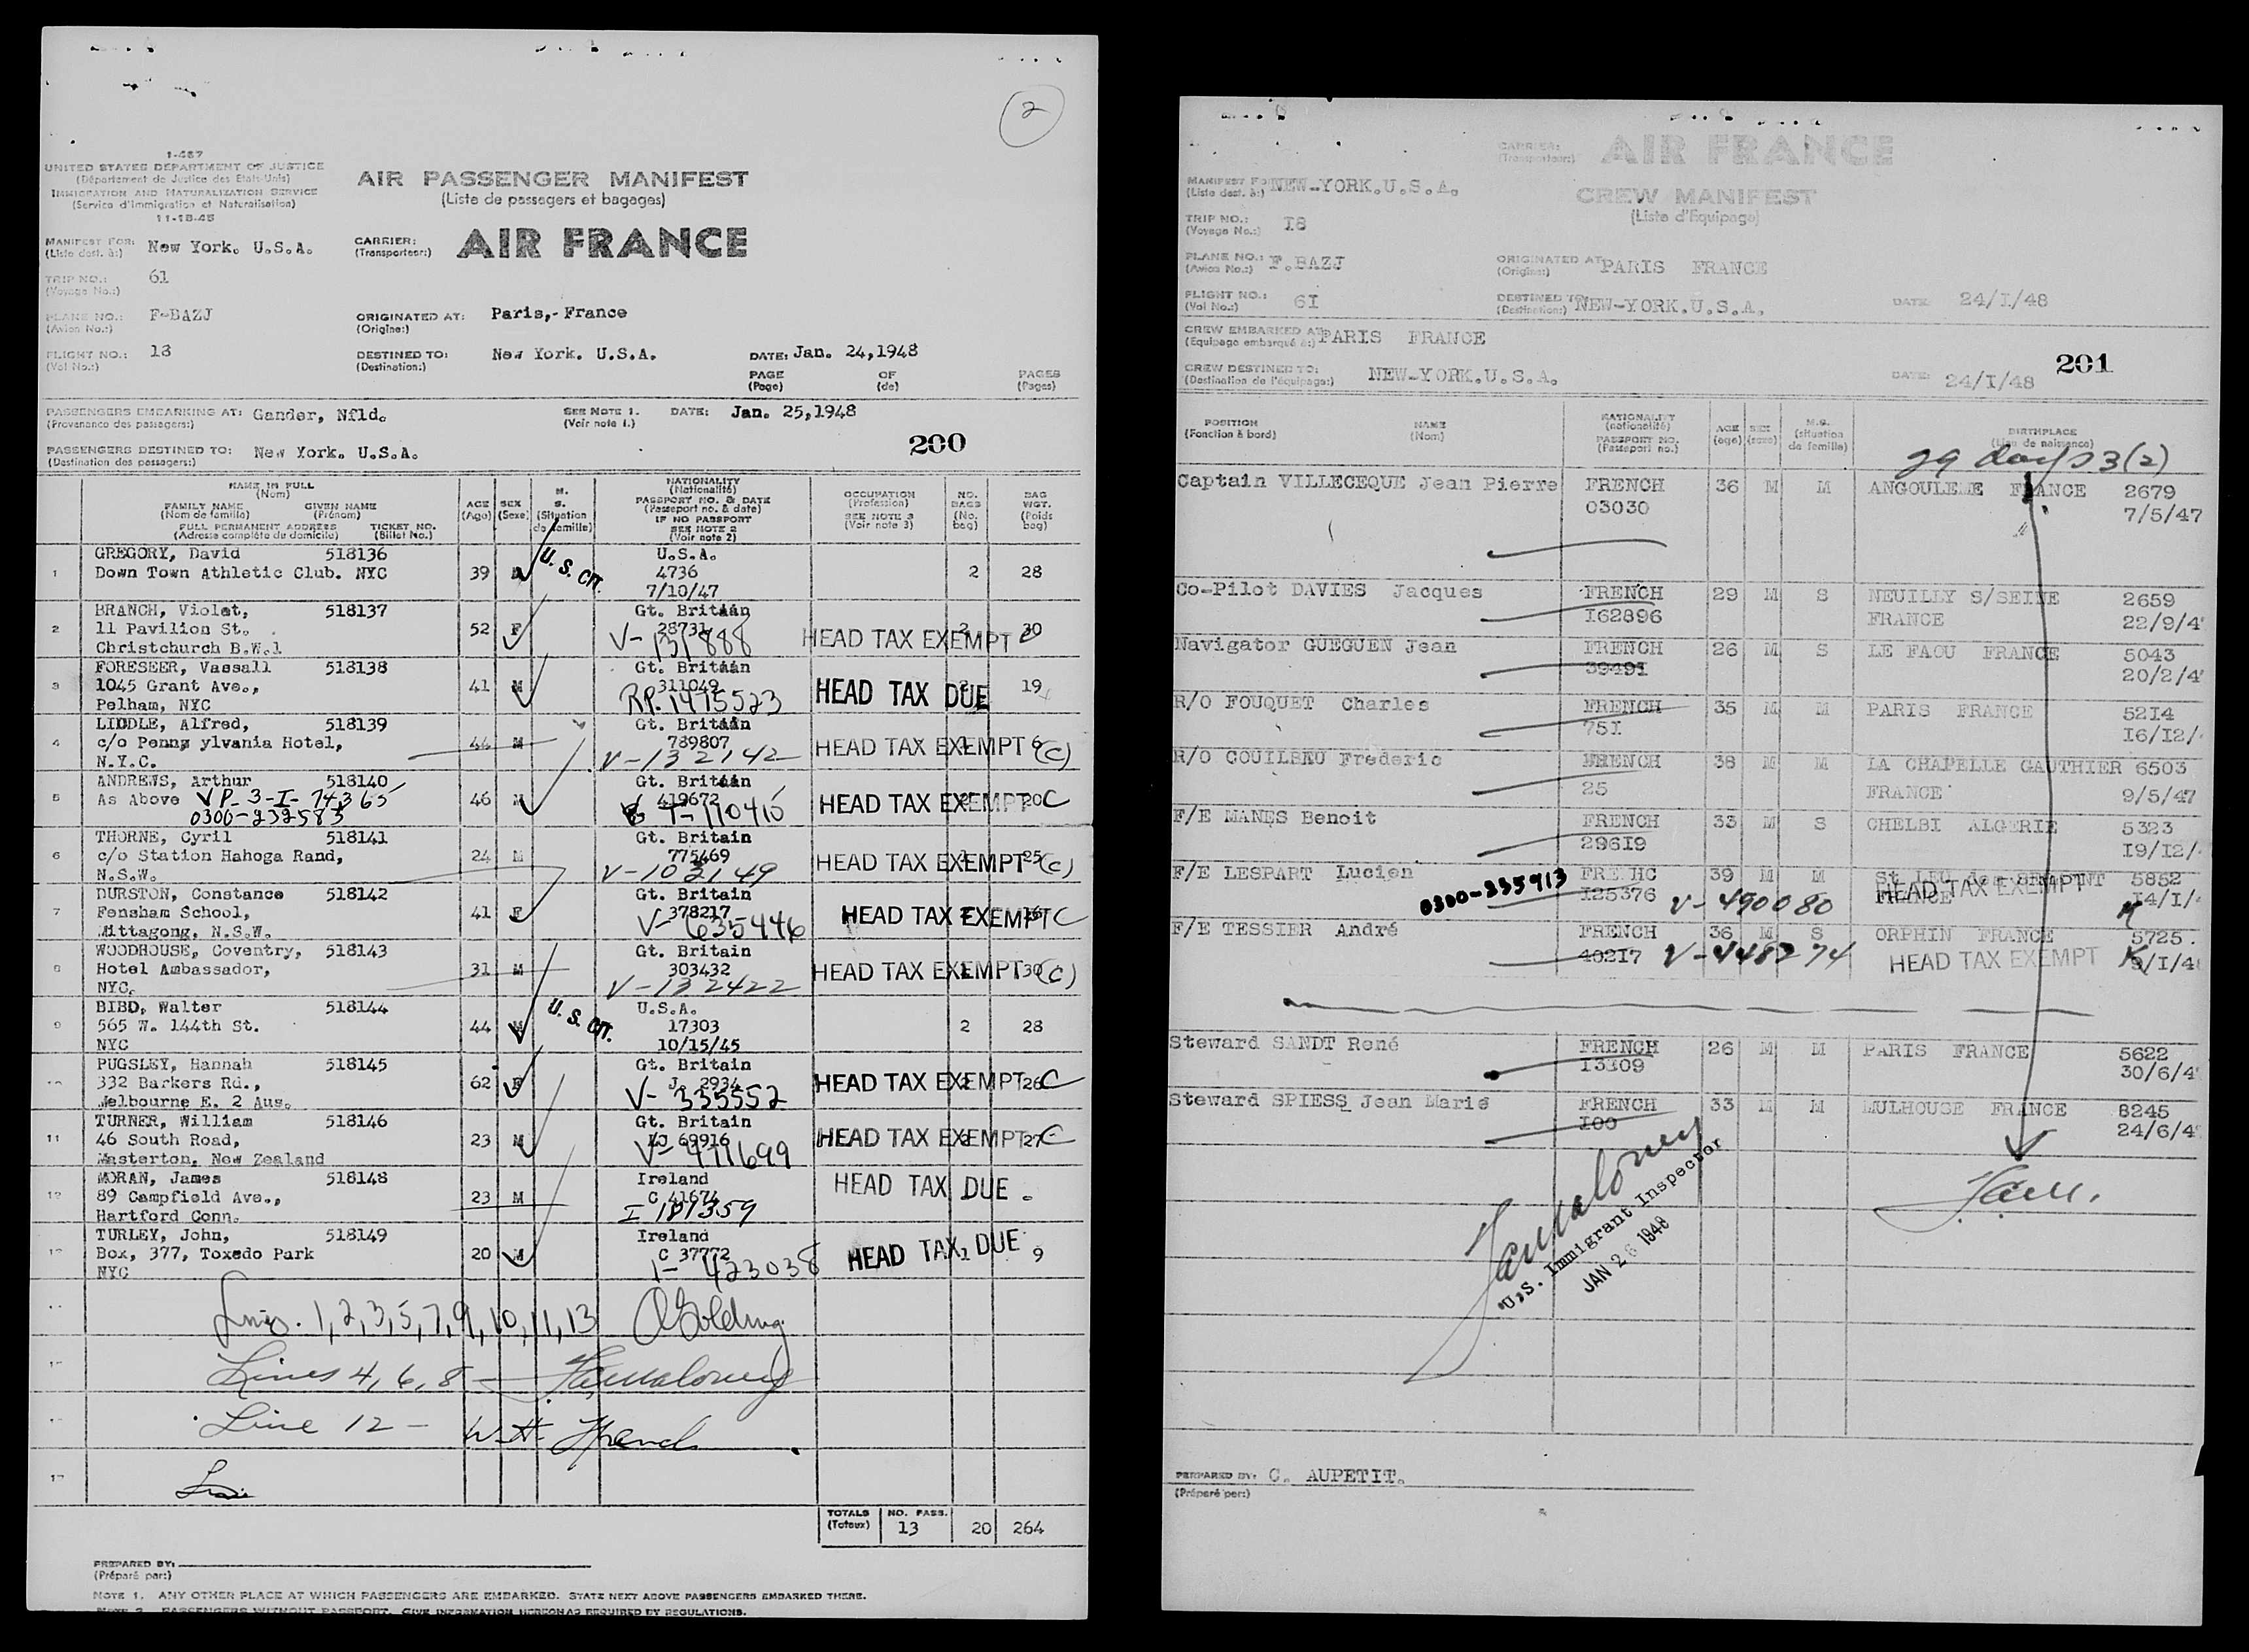 2
1-467
UNITED STATES DEPARTMENT OF JUSTICE
(Département de Justice des Etats-Unis)
IMMIGRATION AND NATURALIZATION SERVICE
(Service d'Immigration et Naturalisation)
11-18-45
AIR PASSENGER MANIFEST
(Liste de passagers et bagages)
MANIFEST FOR: New York. U.S.A.
(Liste dest. à:)
CARRIER: AIR FRANCE
(Transporteur:)
TRIP NO.: 61
(Voyage No.:)
PLANE NO.: F-BAZJ
(Avion No.:)
ORIGINATED AT: Paris,- France
(Origine:)
FLIGHT NO.: 18
(Vol No.:)
DESTINED TO: New York. U.S.A.
(Destination:)
DATE: Jan. 24,1948
PAGE OF PAGES
(Page) (de) (Pages)
PASSENGERS EMBARKING AT: Gander, Nfld.
(Provenance des passagers:)
SEE NOTE 1. DATE: Jan. 25,1948
(Voir note 1.)
200
PASSENGERS DESTINED TO: New York. U.S.A.
(Destination des passagers:)
NAME IN FULL
(Nom)
FAMILY NAME GIVEN NAME
(Nom de famille) (Prénom)
FULL PERMANENT ADDRESS TICKET NO.
(Adresse complète du domicile) (Billet No.)
AGE
(Age)
SEX
(Sexe)
M.
S.
(Situation
de famille)
NATIONALITY
(Nationalité)
PASSPORT NO. & DATE
(Passeport no. & date)
IF NO PASSPORT
SEE NOTE 2
(Voir note 2)
OCCUPATION
(Profession)
SEE NOTE 3
(Voir note 3)
NO.
BAGS
(No.
bag)
BAG
WGT.
(Poids
bag)
GREGORY, David 518136 U.S.A.
1 Down Town Athletic Club. NYC 39 M U. S. CIT. 4736 2 28
7/10/47
BRANCH, Violet, 518137 Gt. Britain
2 11 Pavilion St. 52 F 28731 V-131888 HEAD TAX EXEMPT C 2 30
Christchurch B.W.1
FORESEER, Vassall 518138 Gt. Britain
3 1045 Grant Ave., 41 M 311049 HEAD TAX DUE 19
Pelham, NYC RP. 1475523
LIDDLE, Alfred, 518139 Gt. Britain
4 c/o Penns ylvania Hotel, 44 M 789807 HEAD TAX EXEMPT (C)
N.Y.C. V-132142
ANDREWS, Arthur 518140 Gt. Britain
5 As Above VP-3-I-74365 46 M 419672 HEAD TAX EXEMPT 20 C
0300-232583 T-110410
THORNE, Cyril 518141 Gt. Britain
6 c/o Station Hahoga Rand, 24 M 775469 HEAD TAX EXEMPT 25 (c)
N.S.W. V-103149
DURSTON, Constance 518142 Gt. Britain
7 Fensham School, 41 F 378217 HEAD TAX EXEMPT C
Mittagong, N.S.W. V-635446
WOODHOUSE, Coventry, 518143 Gt. Britain
8 Hotel Ambassador, 31 M 303432 HEAD TAX EXEMPT 30 (C)
NYC. V-132422
BIBD, Walter 518144 U.S.A.
9 565 W. 144th St. 44 M U. S. CIT. 17303 2 28
NYC 10/15/45
PUGSLEY, Hannah 518145 Gt. Britain
332 Barkers Rd., 62 F J. 2934 HEAD TAX EXEMPT 26 C
Melbourne E. 2 Aus. V-335552
TURNER, William 518146 Gt. Britain
11 46 South Road, 23 M 69916 HEAD TAX EXEMPT 27 C
Masterton, New Zealand V-411699
MORAN, James 518148 Ireland
12 89 Campfield Ave., 23 M C 41674 HEAD TAX DUE
Hartford Conn. I 181359
TURLEY, John, 518149 Ireland
Box, 377, Toxedo Park 20 M C 37772 HEAD TAX DUE 1 9
NYC I-423038
Lines. 1,2,3,5,7,9,10,11,13 Golding
Lines 4, 6, 8 — Maloney
Line 12 - W. H.
TOTALS NO. PASS.
(Totaux) 13 20 264
PREPARED BY:
(Préparé par:)
NOTE 1. ANY OTHER PLACE AT WHICH PASSENGERS ARE EMBARKED. STATE NEXT ABOVE PASSENGERS EMBARKED THERE.
NOTE 2. PASSENGERS WITHOUT PASSPORT. GIVE INFORMATION THEREON AS REQUIRED BY REGULATIONS.
CARRIER: AIR FRANCE
(Transporteur:)
MANIFEST FOR NEW-YORK.U.S.A.
(Liste dest. à:)
CREW MANIFEST
(Liste d'Équipage)
TRIP NO.: I8
(Voyage No.:)
PLANE NO.: F.BAZJ
(Avion No.:)
ORIGINATED AT PARIS FRANCE
(Origine:)
FLIGHT NO.: 6I
(Vol No.:)
DESTINED TO: NEW-YORK.U.S.A.
(Destination:)
DATE: 24/I/48
CREW EMBARKED AT PARIS FRANCE
(Equipage embarqué à:)
201
CREW DESTINED TO: NEW-YORK.U.S.A.
(Destination de l'équipage:)
DATE: 24/I/48
POSITION
(Fonction à bord)
NAME
(Nom)
NATIONALITY
(nationalité)
PASSPORT NO.
(Passeport no.)
AGE
(age)
SEX
(sexe)
M.S.
(situation
de famille)
BIRTHPLACE
(Lieu de naissance)
29 days 3(2)
Captain VILLECEQUE Jean Pierre FRENCH 36 M M ANGOULEME FRANCE 2679
03030 7/5/47
Co-Pilot DAVIES Jacques FRENCH 29 M S NEUILLY S/SEINE 2659
I62896 FRANCE 22/9/4
Navigator GUEGUEN Jean FRENCH 26 M S LE FAOU FRANCE 5043
3949I 20/2/4
R/O FOUQUET Charles FRENCH 35 M M PARIS FRANCE 52I4
75I I6/I2/
R/O COUILBEU Frederic FRENCH 38 M M LA CHAPELLE GAUTHIER 6503
25 FRANCE 9/5/47
F/E MANES Benoit FRENCH 33 M S CHELBI ALGERIE 5323
296I9 I9/I2/
F/E LESPART Lucien FRENHC 39 M M St LEU 5852
0300-235913 I25376 V-490080 FRANCE HEAD TAX EXEMPT I4/I/
F/E TESSIER André FRENCH 36 M S ORPHIN FRANCE 5725.
402I7 V-448274 HEAD TAX EXEMPT 9/I/4
Steward SANDT René FRENCH 26 M M PARIS FRANCE 5622
I3309 30/6/4
Steward SPIESS Jean Marie FRENCH 33 M M MULHOUSE FRANCE 8245
I00 24/6/4
Maloney
U.S. Immigrant Inspector
JAN 26 1948
PREPARED BY: C. AUPETIT.
(Préparé par:)